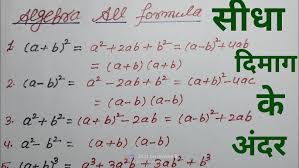 Algebra All formula
1. (a+b)² = a²+2ab+b² = (a-b)²+4ab
= (a+b)(a+b)
2. (a-b)² = a²-2ab+b² = (a+b)²-4ab
= (a-b)(a-b)
3. a²+b² = (a+b)²-2ab = (a-b)²+2ab
4. a²-b² = (a+b)(a-b)
5. (a+b)³ = a³+3a²b+3ab²+b³
सीधा
दिमाग
के
अंदर